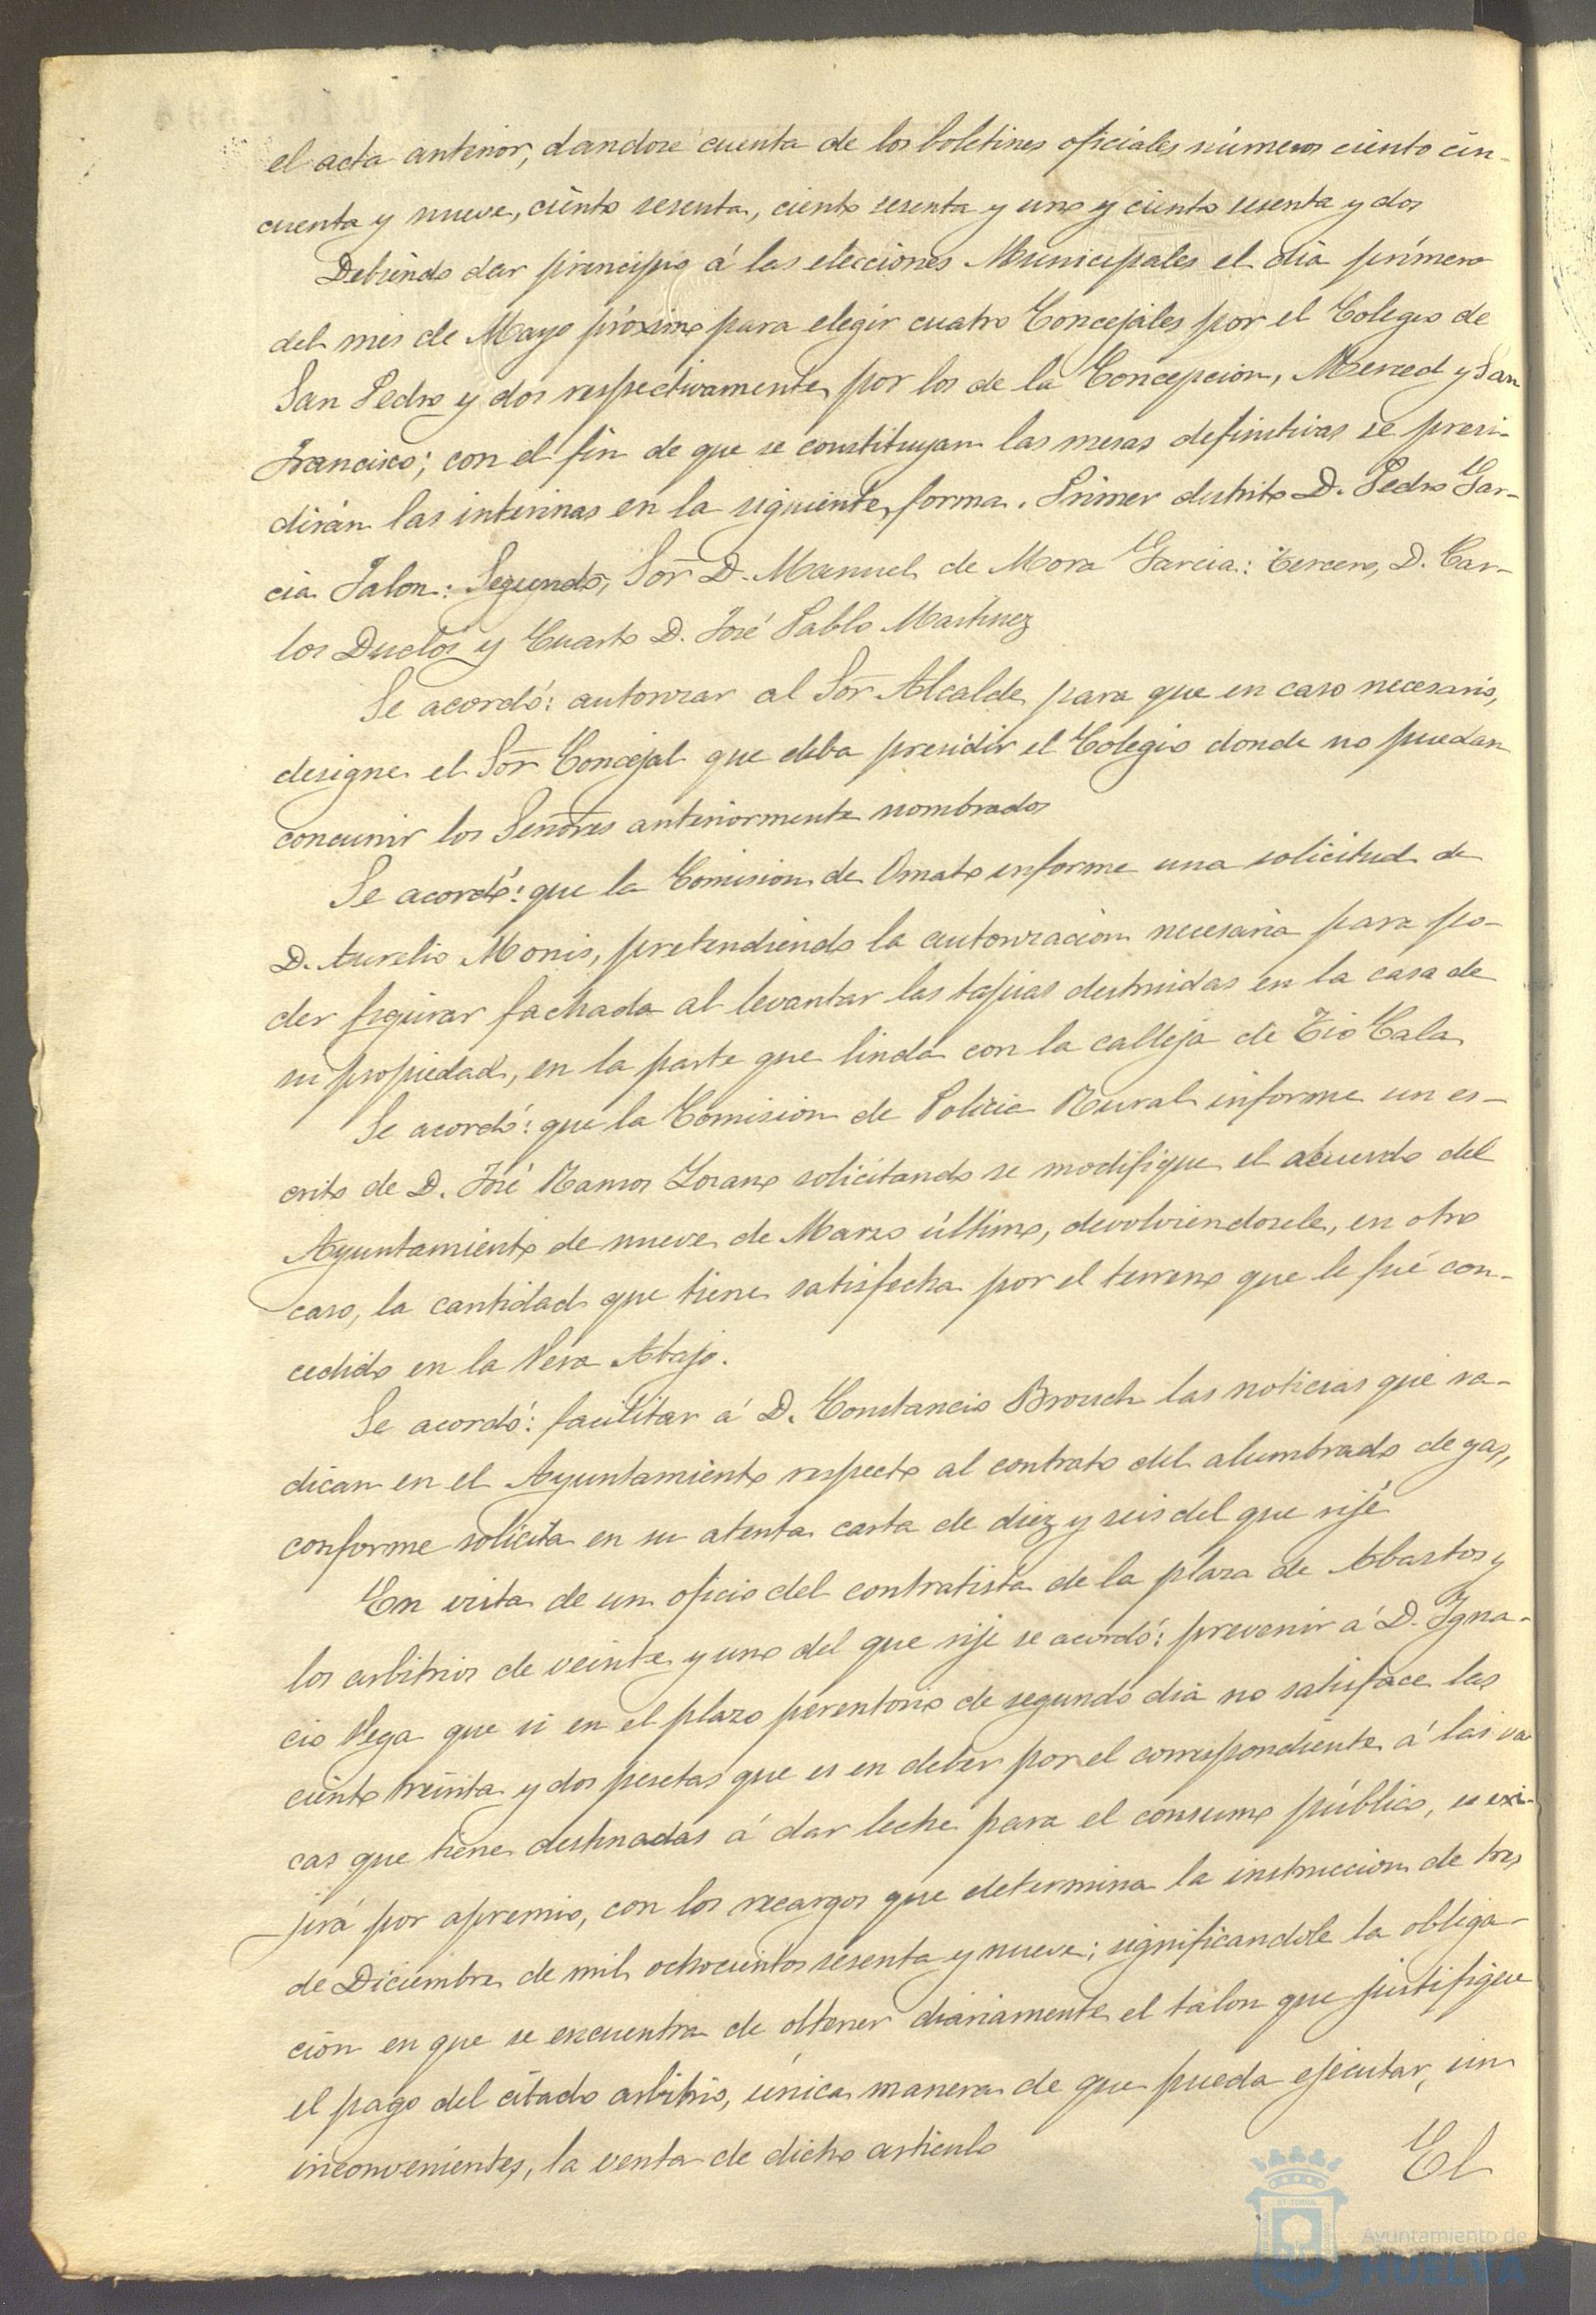 el acta anterior, dandose cuenta de los boletines oficiales números ciento cin-
cuenta y nueve, ciento sesenta, ciento sesenta y uno y ciento sesenta y dos
Debiendo dar principio á las elecciones Municipales el dia primero
del mes de Mayo próximo para elegir cuatro Concejales por el Colegio de
San Pedro y dos respectivamente por los de la Concepcion, Merced y San
Francisco; con el fin de que se constituyan las mesas definitivas se presi-
dirán las interinas en la siguiente forma. Primer distrito D. Pedro Gar-
cia Jalon: Segundo, Sor D. Manuel de Mora Garcia: tercero, D. Car-
los Duclós y Cuarto D. José Pablo Martinez
Se acordó: autorizar al Sor Alcalde para que en caso necesario,
designe el Sor Concejal que deba presidir el Colegio donde no puedan
concurrir los Señores anteriormente nombrados
Se acordó: que la Comision de Ornato informe una solicitud de
D. Aurelio Monis, pretendiendo la autorizacion necesaria para po-
der figurar fachada al levantar las tapias destruidas en la casa de
su propiedad, en la parte que linda con la calleja de Tio Cala
Se acordó: que la Comision de Policia Rural informe un es-
crito de D. José Ramos Lozano solicitando se modifique el acuerdo del
Ayuntamiento de nueve de Marzo último, devolviendosele, en otro
caso, la cantidad que tiene satisfecha por el terreno que le fué con-
cedido en la Vera Abajo.
Se acordó: facilitar á D. Constancio Brouch las noticias que ra-
dican en el Ayuntamiento respecto al contrato del alumbrado de gas,
conforme solicita en su atenta carta de diez y seis del que rije
En vista de un oficio del contratista de la plaza de Abastos y
los arbitrios de veinte y uno del que rije se acordó: prevenir á D. Igna-
cio Vega que si en el plazo perentorio de segundo dia no satisface las
ciento treinta y dos pesetas que es en deber por el correspondiente á las va
cas que tiene destinadas á dar leche para el consumo público, se exi-
jirá por apremio, con los recargos que determina la instruccion de tres
de Diciembre de mil ochocientos sesenta y nueve; significandole la obliga-
cion en que se encuentra de obtener diariamente el talon que justifique
el pago del citado arbitrio, única manera de que pueda ejecutar, sin
inconvenientes, la venta de dicho articulo
El
Ayuntamiento de
HUELVA